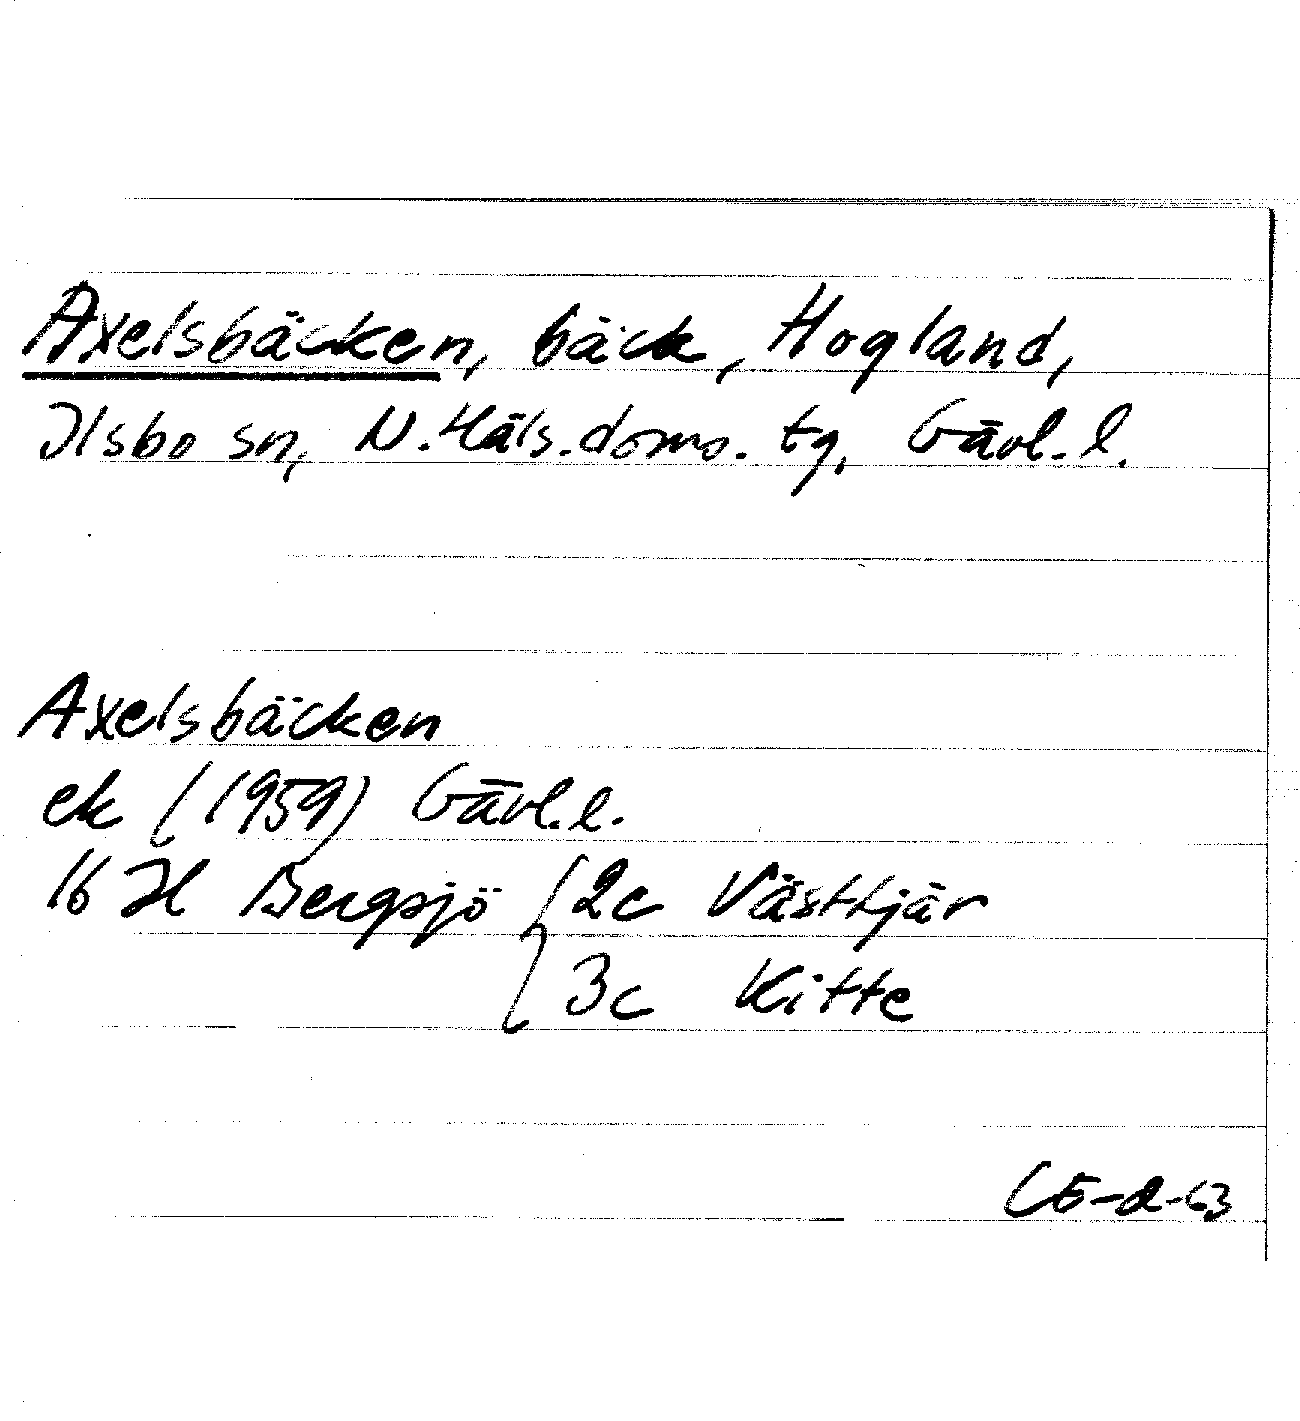 Axelsbäcken, bäck, Hogland,
Ilsbo sn, N. Häls. doms. tg, Gävl. l.
Axelsbäcken
ek (1959) Gävl. l.
16 H Bergsjö { 2c Västtjär
3c Kitte
-2-63